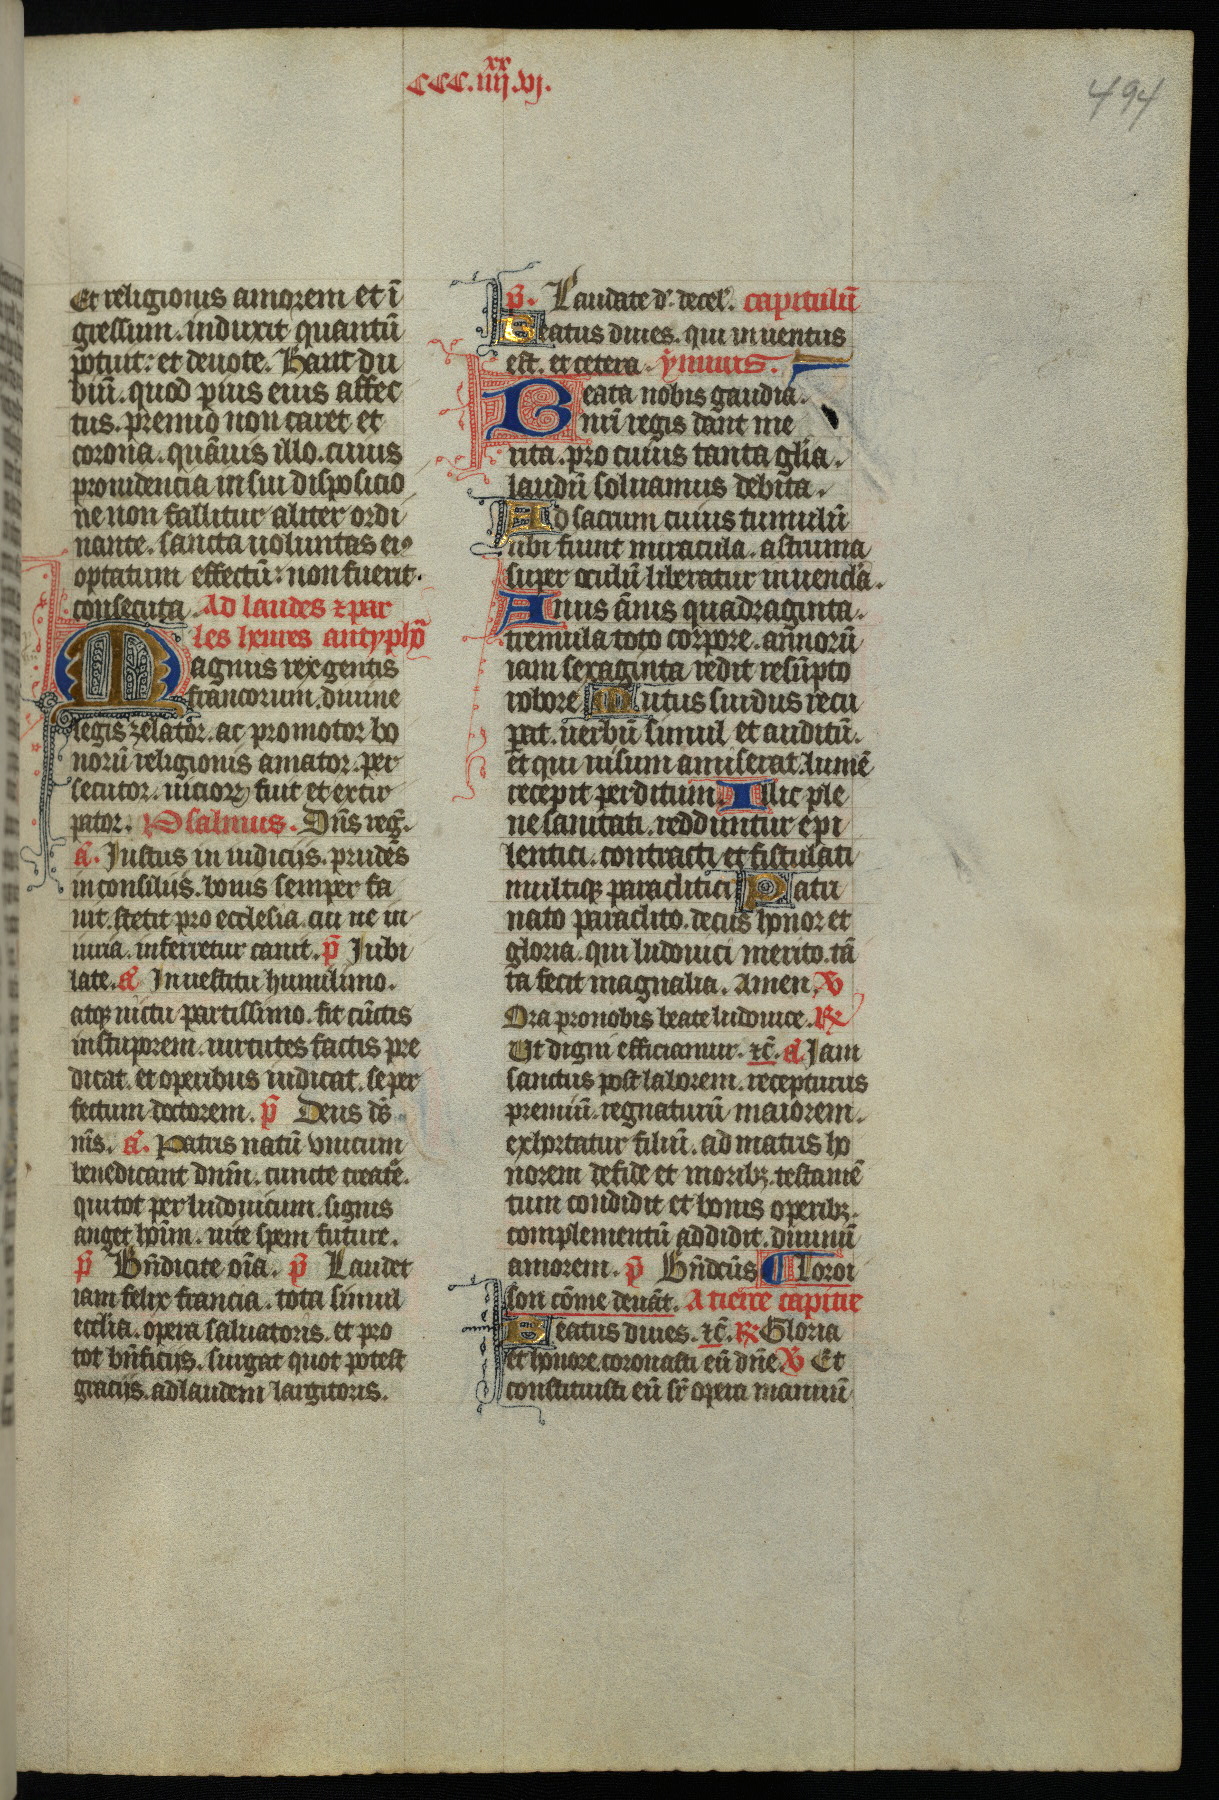 CCC.iiij.xx vj.
494
Et religionis amorem et ī
gressum. induxit quantū
potuit: et deuote. Haut du
biū. quod pius eius affec
tus. premio non caret et
corona. quāuis illo. cuius
prouidencia in sui disposicio
ne non fallitur aliter ordi
nante. sancta uoluntas ei9
optatum effectū: non fuerit.
consecuta. Ad laudes z par
les heures antyphō
Magnus rex gentis
francorum. diuine
legis zelator. ac promotor bo
norū religionis amator. per
secutor. uicioꝝ fuit et extir
pator. Psalmus. Dn̄s reg̃.
a. Iustus in iudicijs. prudēs
in consiliis. bonis semper fa
uit. stetit pro ecclesia. cui ne in
iuria. inferretur cauit. p̄ Iubi
late. a In uestitu humilimo.
atqꝫ uictu partissimo. fit cūctis
in stuporem. uirtutes factis pre
dicat. et operibus iudicat. se per
fectum doctorem. p̄ Deus ds̄
m̄s. a. Patris natū vnicum
benedicant dn̄m. cuncte create.
qui tot per ludouicum. signis
auget hoīm. uite spem future.
p̄ Bn̄dicite oīa. p̄ Laudet
iam felix francia. tota simul
ecclīa. opera saluatoris. et pro
tot bn̄ficijs. surgat quot potest
gracijs. ad laudem largitoris.
p̄. Laudate d. de cel'. capitulū
Beatus diues. qui inuentus
est. et cetera. ymnus.
Beata nobis gaudia.
nr̄i regis dant me
rita. pro cuius tanta glīa.
laudū soluamus debita.
Ad sacrum cuius tumulū
ubi fiunt miracula. a struma
super oculū liberatur iuuencla.
Anus ānis quadraginta.
tremula toto corpore. annorū
iam sexaginta redit resūpto
robore Mutus surdus recu
ꝑat. uerbū simul et auditū.
et qui uisum amiserat. lumē
recepit perditum. Illic ple
ne sanitati. redduntur epi
lentici. contracti et fistulati
multiqꝫ paraclitici Patri
nato paraclito. decus honor et
gloria. qui ludouici merito. tā
ta fecit magnalia. Amen. V
Ora pro nobis beate ludouice. R
Ut digni efficiamur. zc̄. a Iam
sanctus post laborem. recepturus
premiū. regnaturū maiorem.
exhortatur filiū. ad matris ho
norem de fide et moribꝫ. testamē
tum condidit et bonis operibꝫ.
complementū addidit. diuinū
amorem. p̄ Bn̄dc̄us Loroi
son cōme deuāt. A tierce capitre
Beatus diues. zc̄. R Gloria
et honore. coronasti eū dn̄e V Et
constituisti eū sr̄ opera manuū